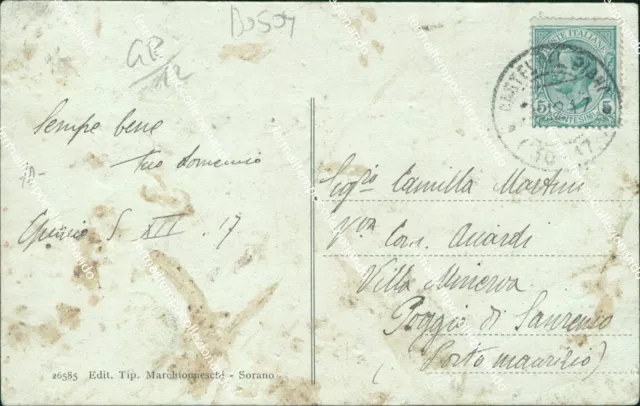 GR/12
Sempre bene
tuo domenico
5 XII . 17
POSTE ITALIANE
5 5
CENTESIMI
Sig.ra Camilla Martini
V.va Com. Accardi
Villa Minerva
Poggio di Sanremo
(Porto maurizio)
26585 Edit. Tip. Marchionneschi - Sorano